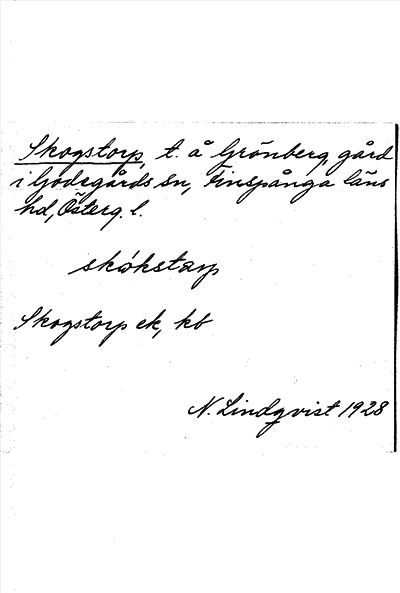 Skogstorp, t. å Grönberg, gård
i Godegårds sn, Finspånga läns
hd, Österg. l.
skókstarp
Skogstorp ek, kb
N. Lindqvist 1928